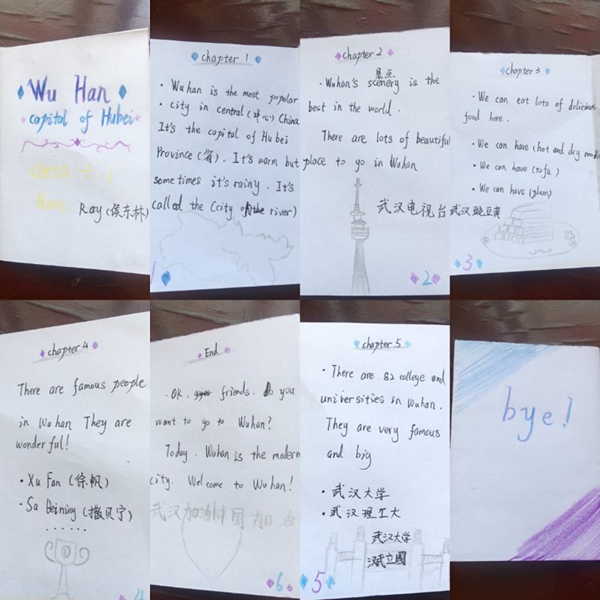 Wu Han
capital of Hubei
Ray (侯东林)
chapter 1
· Wuhan is the most popular
· city in central (中心) China
It's the capital of Hubei
Province (省). It's warm but
sometimes it's rainy. It's
called the (city of the river)
1
chapter 2
景点
· Wuhan's scenery is the
best in the world.
There are lots of beautiful
place to go in Wuhan
武汉电视台
2
chapter 3
· We can eat lots of delicious
food here.
· We can have (hot and dry noodles
· We can have (tofu)
· We can have (plum)
武汉豌豆黄
3
chapter 4
There are famous people
in Wuhan They are
wonderful!
· Xu Fan (徐帆)
· Sa Beining (撒贝宁)
......
4
End
· OK. friends. Do you
want to go to Wuhan?
Today. Wuhan is the modern
city. Welcome to Wuhan!
武汉加油中国加油
6
chapter 5
· There are 82 college and
universities in Wuhan.
They are very famous
and big
· 武汉大学
· 武汉理工大
武汉大学
5
bye!